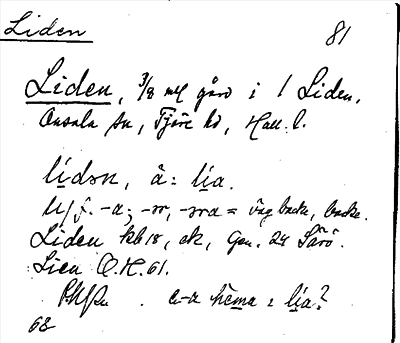 Liden
81
Liden, 3/8 mtl gård i / Liden,
Onsala sn, Fjäre hd, Hall. l.
lịdən, å: lịa.
u/f. -a; -ər, -əra = väg backe, backe.
Liden kb 18, ek, Gen. 24 Särö.
Lien O.H. 61.
hẹma : lịa?
68